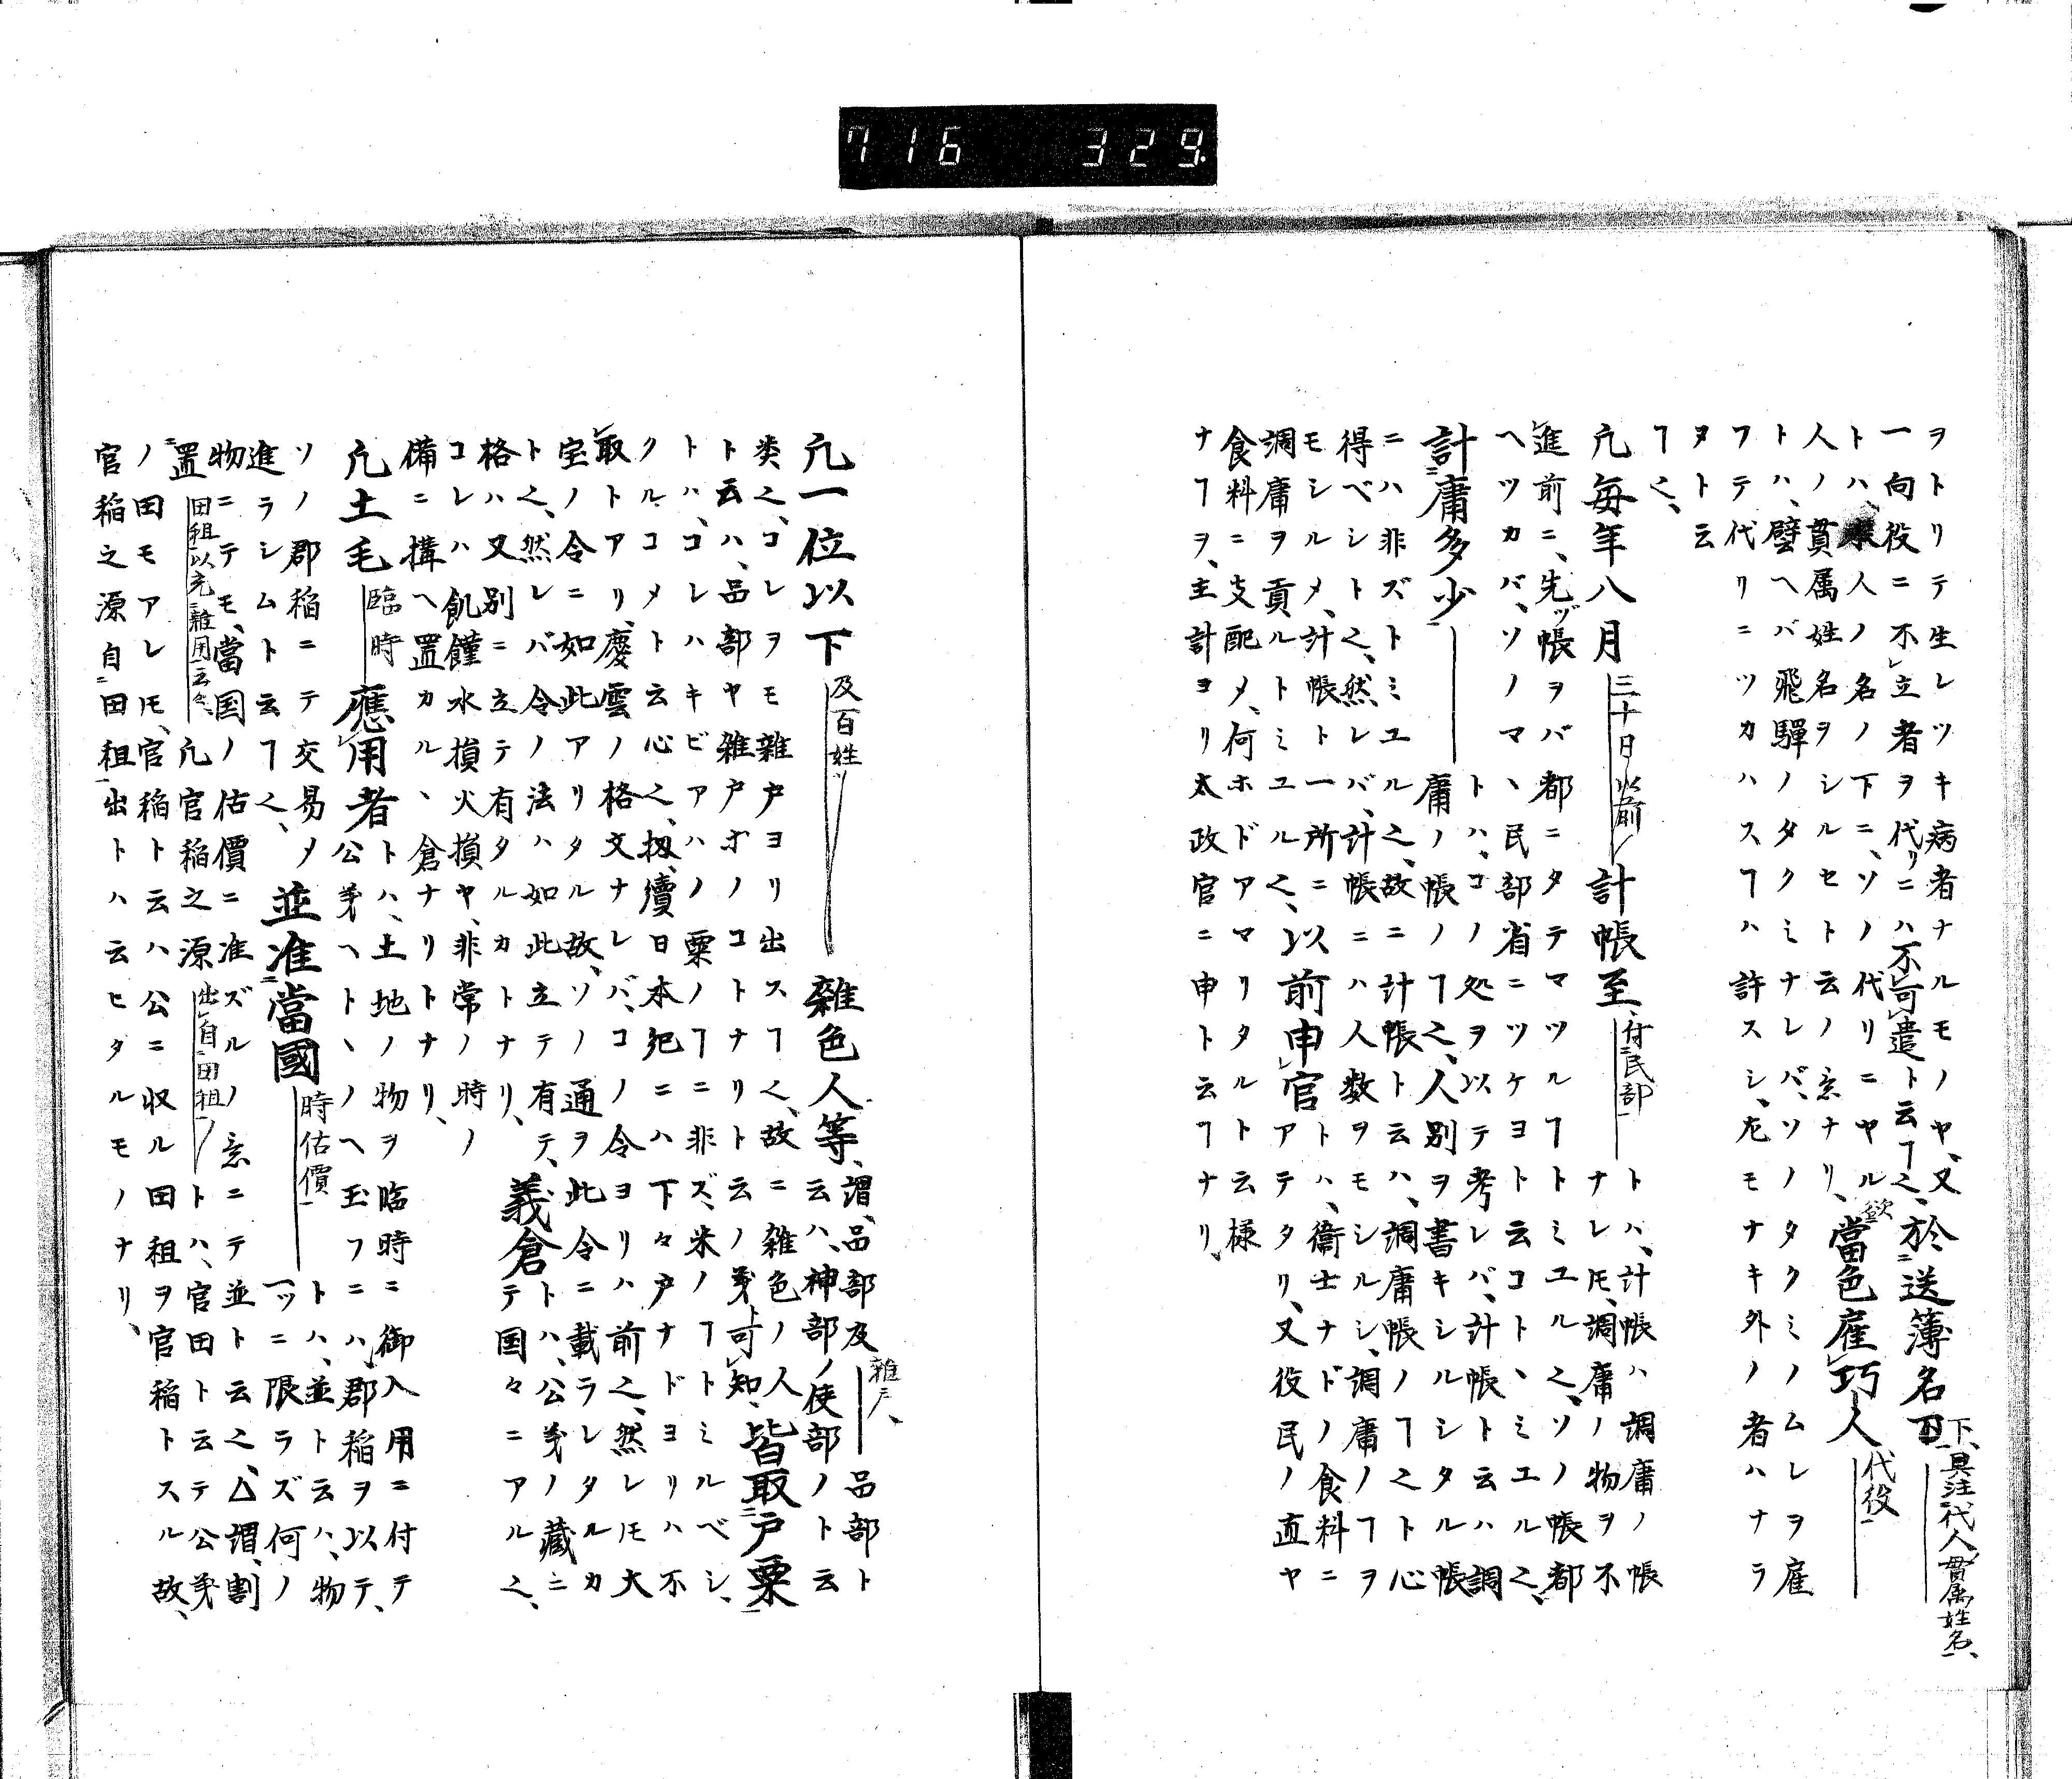 716 329.
ヲトリテ生レツキ病者ナルモノヤ、又於送簿名下下、具注代人貫属姓名、
一向役ニ不立者ヲ代リニハ不可遣ト云ヿ也、
トハ、人ノ名ノ下ニ、ソノ代リニヤル當色雇巧人代役
人ノ貫属姓名ヲシルセト云ノ意ナリ、
トハ、譬ヘバ飛驒ノタクミナレバ、ソノタクミノムレヲ雇
フテ代リニツカハスヿハ許スシ、尤モナキ外ノ者ハナラ
ヌト云
ヿ也、
凡毎年八月三十日以前計帳至、付民部トハ、計帳ハ調庸ノ帳
ナレ𪜈、調庸ノ物ヲ不
進前ニ、先ヅ帳ヲバ都ニタテマツルヿトミユル也、ソノ帳都
ヘツカバ、ソノマヽ民部省ニツケヨト云コトヽミエル也、
計庸多少トハ、コノ処ヲ以テ考レバ、計帳ト云ハ調
庸ノ帳ノヿ也、人別ヲ書キシルシタル帳
ニハ非ズトミユル也、故ニ計帳ト云ハ、調庸帳ノヿ也ト心
得ベシト也、然レバ、計帳ニハ人数ヲモシルシ、調庸ノヿヲ
モシルメ、計帳ト一所ニ以前申官トハ、衞士ナドノ食料ニ
調庸ヲ貢ルトミユル也、アテタリ、又役民ノ直ヤ
食料ニ支配メ、何ホドアマリタルト云様
ナヿヲ、主計ヨリ太政官ニ申ト云ヿナリ、
凡一位以下及百姓雜色人等、謂、品部及雜戸、品部ト
云ハ、神部ノ使部ノト云
类也、コレヲモ雜戸ヨリ出スヿ也、故ニ雜色ノ人皆取戸粟
ト云ハ、品部ヤ雜戸ホノコトナリト云ノ義可知、
トハ、コレハキビアハノ粟ノヿニ非ズ、米ノヿトミルベシ、
クルコメト云心也、扨、續日本紀ニハ下々戸ナドヨリハ不
取トアリ、慶雲ノ格文ナレバ、コノ令ヨリハ前也、然レ𪜈大
宝ノ令ニ如此アリタル故、ソノ通ヲ此令ニ載ラレタルカ
ト也、然レバ令ノ法ハ如此立テ有テ、義倉トハ、公義ノ藏ニ
格ハ又別ニ立テ有タルカトナリ、テ国々ニアル也、
コレハ飢饉水損火損ヤ、非常ノ時ノ
備ニ搆ヘ置カルヽ倉ナリトナリ、
凡土毛臨時應用者トハ、土地ノ物ヲ臨時ニ御入用ニ付テ
公義ヘトヽノヘ玉フニハ、郡稲ヲ以テ、
ソノ郡稲ニテ交易メ並准當國時估價トハ、並ト云ハ、物
進ラシムト云ヿ也、一ツニ限ラズ何ノ
物ニテモ、當国ノ估價ニ准ズルノ意ニテ並ト云也、△謂、割
置田租以充雜用云々、凡官稲之源出自田租トハ、官田ト云テ公義
ノ田モアレ𪜈、官稲ト云ハ公ニ収ル田租ヲ官稲トスル故、
官稲之源自田租出トハ云ヒタルモノナリ、